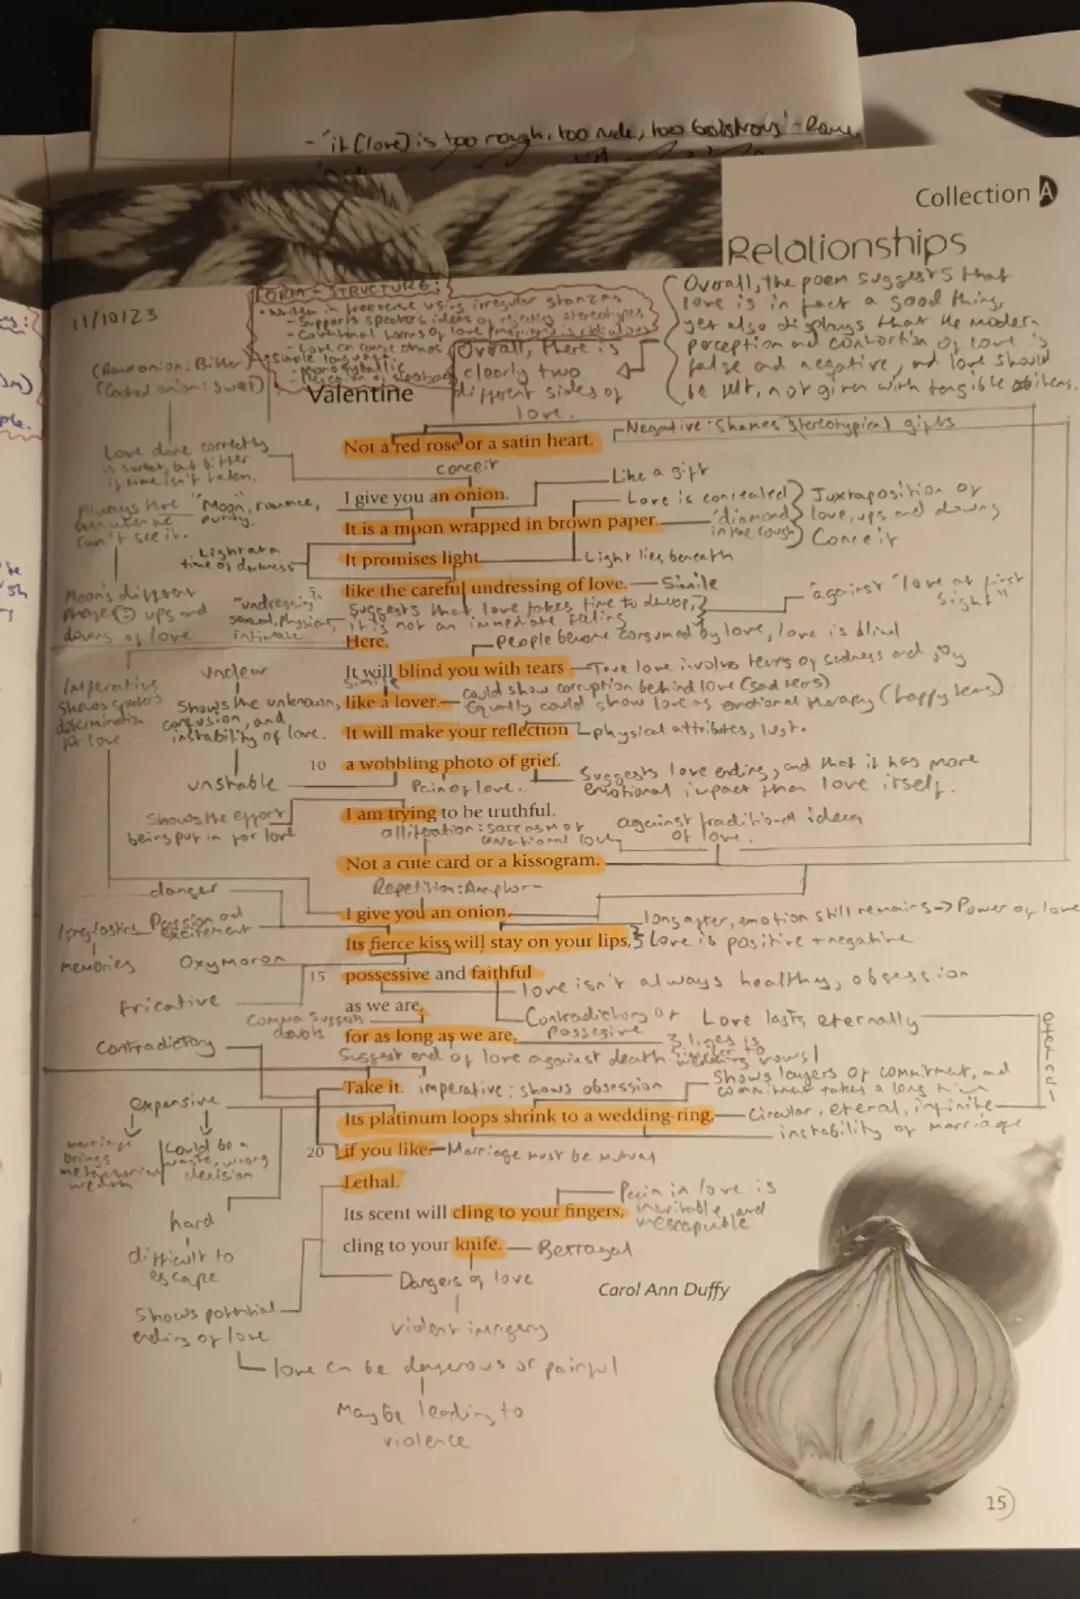 - 'it (love) is too rough, too rude, too boistrous' -
Collection A
Relationships
11/10/23
FORM + STRUCTURE:
• Written in freeverse using irregular stanzas
- Supports speakers ideas of rejecting stereotypes
- love is ridiculous
- Love can cause
• Simple language:
- Monosyllabic
Overall, there is
clearly two
different sides of
love.
Overall, the poem suggests that
love is in fact a good thing,
yet also displays that the modern
perception and contortion of love is
false and negative, and love should
be felt, not given with tangible
(Raw onion: Bitter)
(Cooked onion: Sweet)
Valentine
Negative: Shames stereotypical gifts
Love done correctly
is sweet, but bitter
if time isn't taken.
Not a red rose or a satin heart.
conceit
Like a gift
I give you an onion.
Love is concealed
Juxtaposition of
love, ups and downs
Conceit
Always there
even when we
can't see it.
"Moon", romance,
purity.
It is a moon wrapped in brown paper.
'diamond
in the rough
Light at a
time of darkness
It promises light
Light lies beneath
5
like the careful undressing of love.
Simile
"against "love at first
sight"
Moon's different
phases → ups and
downs of love
"undressing"
sexual, physical,
intimate
Suggests that love takes time to develop,
it is not an immediate feeling
Here.
people become consumed by love, love is blind
It will blind you with tears
True love involves tears of sadness and joy
Simile
unclear
Imperative
shows speakers
determination
for love
Shows the unknown,
confusion, and
instability of love.
like a lover.
could show corruption behind love (sad tears)
Equally could show love as emotional therapy (happy tears)
It will make your reflection
physical attributes, lust.
10
a wobbling photo of grief.
unstable
Pain of love.
Suggests love ending, and that it has more
emotional impact than love itself.
I am trying to be truthful.
Shows the effort
being put in for love
alliteration: sarcasm of
conventional love
against traditional ideas
of love.
Not a cute card or a kissogram.
Repetition:
danger
I give you an onion.
long after, emotion still remains -> Power of love
Passion and
excitement
Its fierce kiss will stay on your lips,
Love is positive + negative
long lasting
memories
Oxymoron
15
possessive and faithful
love isn't always healthy, obsession
Fricative
as we are,
Comma suggests
doubts
Contradictory of
possesive
Love lasts eternally
Contradictory
for as long as we are.
3 lines is
wedding vows!
Suggest end of love against death
Take it.
imperative: shows obsession
Shows layers of commitment, and
commitment takes a long time
expansive
Its platinum loops shrink to a wedding-ring,
Circular, eteral, infinite
instability of marriage
marriage
brings
Could be a
waste, wrong
decision
20
if you like.
Marriage must be mutual
Lethal.
Pain in love is
inevitable, and
inescapable
Its scent will cling to your fingers,
hard
difficult to
escape
cling to your knife.
Betrayal
Dangers of love
Carol Ann Duffy
Shows potential
ending of love
violent imagery
love can be dangerous or painful
Maybe leading to
violence
15